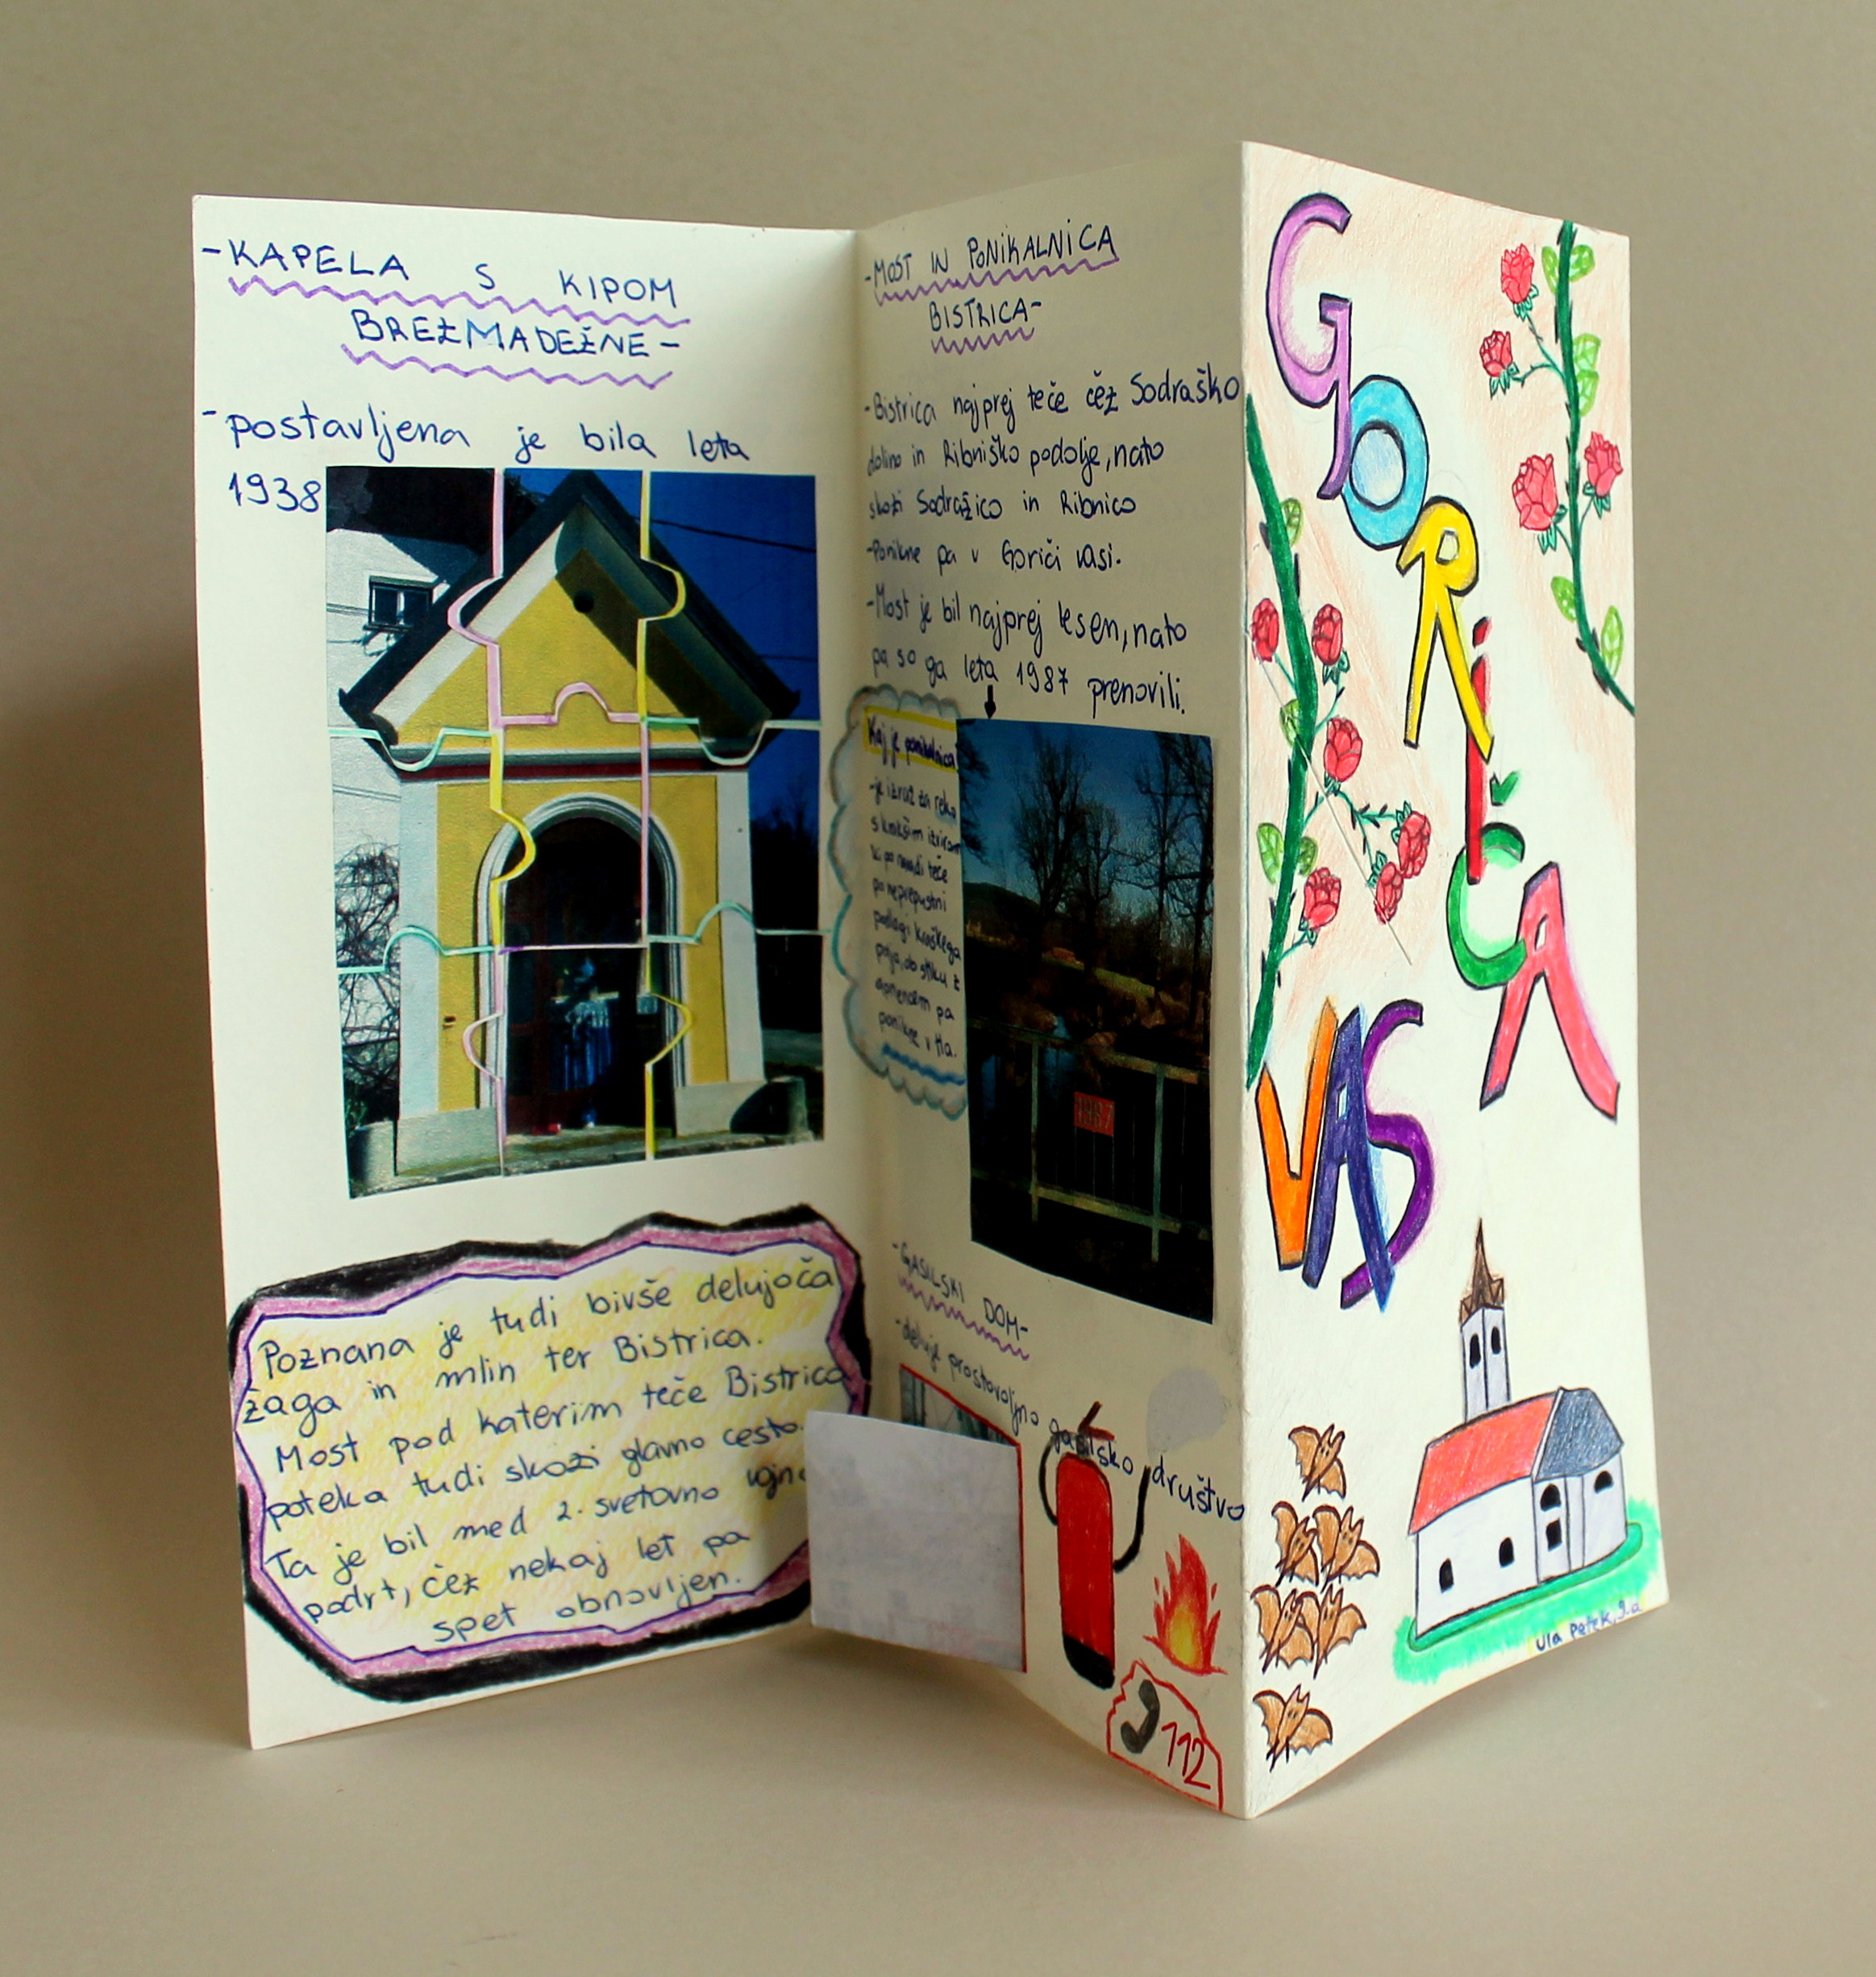 -KAPELA S KIPOM
BREZMADEŽNE-
-postavljena je bila leta
1938
Poznana je tudi bivše delujoča
žaga in mlin ter Bistrica.
Most pod katerim teče Bistrica
poteka tudi skozi glavno cesto.
Ta je bil med 2. svetovno vojno
podrt, čez nekaj let pa
spet obnovljen.
-MOST IN PONIKALNICA
BISTRICA-
-Bistrica najprej teče čez Sodraško
dolino in Ribniško podolje, nato
skozi Sodražico in Ribnico
-Ponikne pa v Goriči vasi.
-Most je bil najprej lesen, nato
pa so ga leta 1987 prenovili.
Kaj je ponikalnica
-je izraz za reko
s kraškim izvirom
ki po navadi teče
po neprepustni
podlagi kraškega
polja, ob stiku z
apnencem pa
ponikne v tla.
1987
-GASILSKI DOM-
-deluje prostovoljno gasilsko društvo
112
GORIČA
VAS
Ula Petek, 9.a